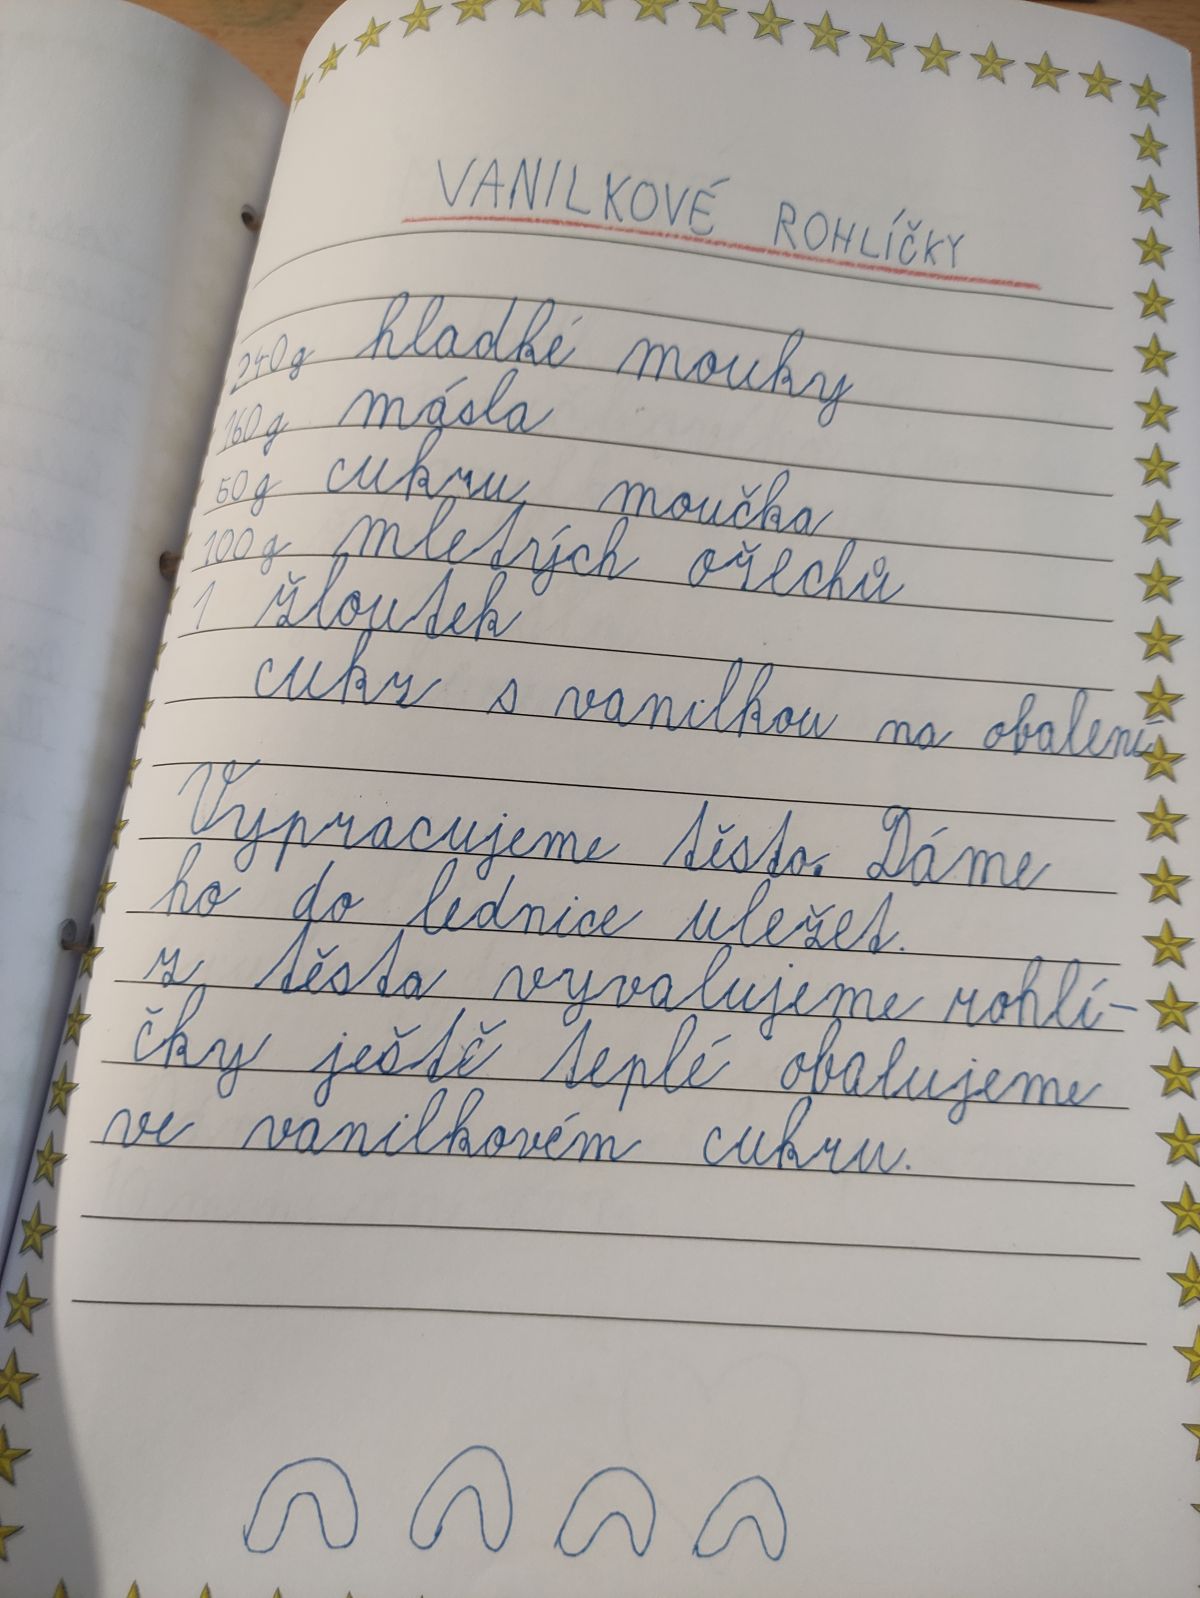 VANILKOVÉ ROHLÍČKY
240g hladké mouky
160g másla
50g cukru moučka
100g mletých ořechů
1 žloutek
cukr s vanilkou na obalení
Vypracujeme těsto. Dáme
ho do lednice uležet.
z těsta vyvalujeme rohlí-
čky ještě teplé obalujeme
ve vanilkovém cukru.